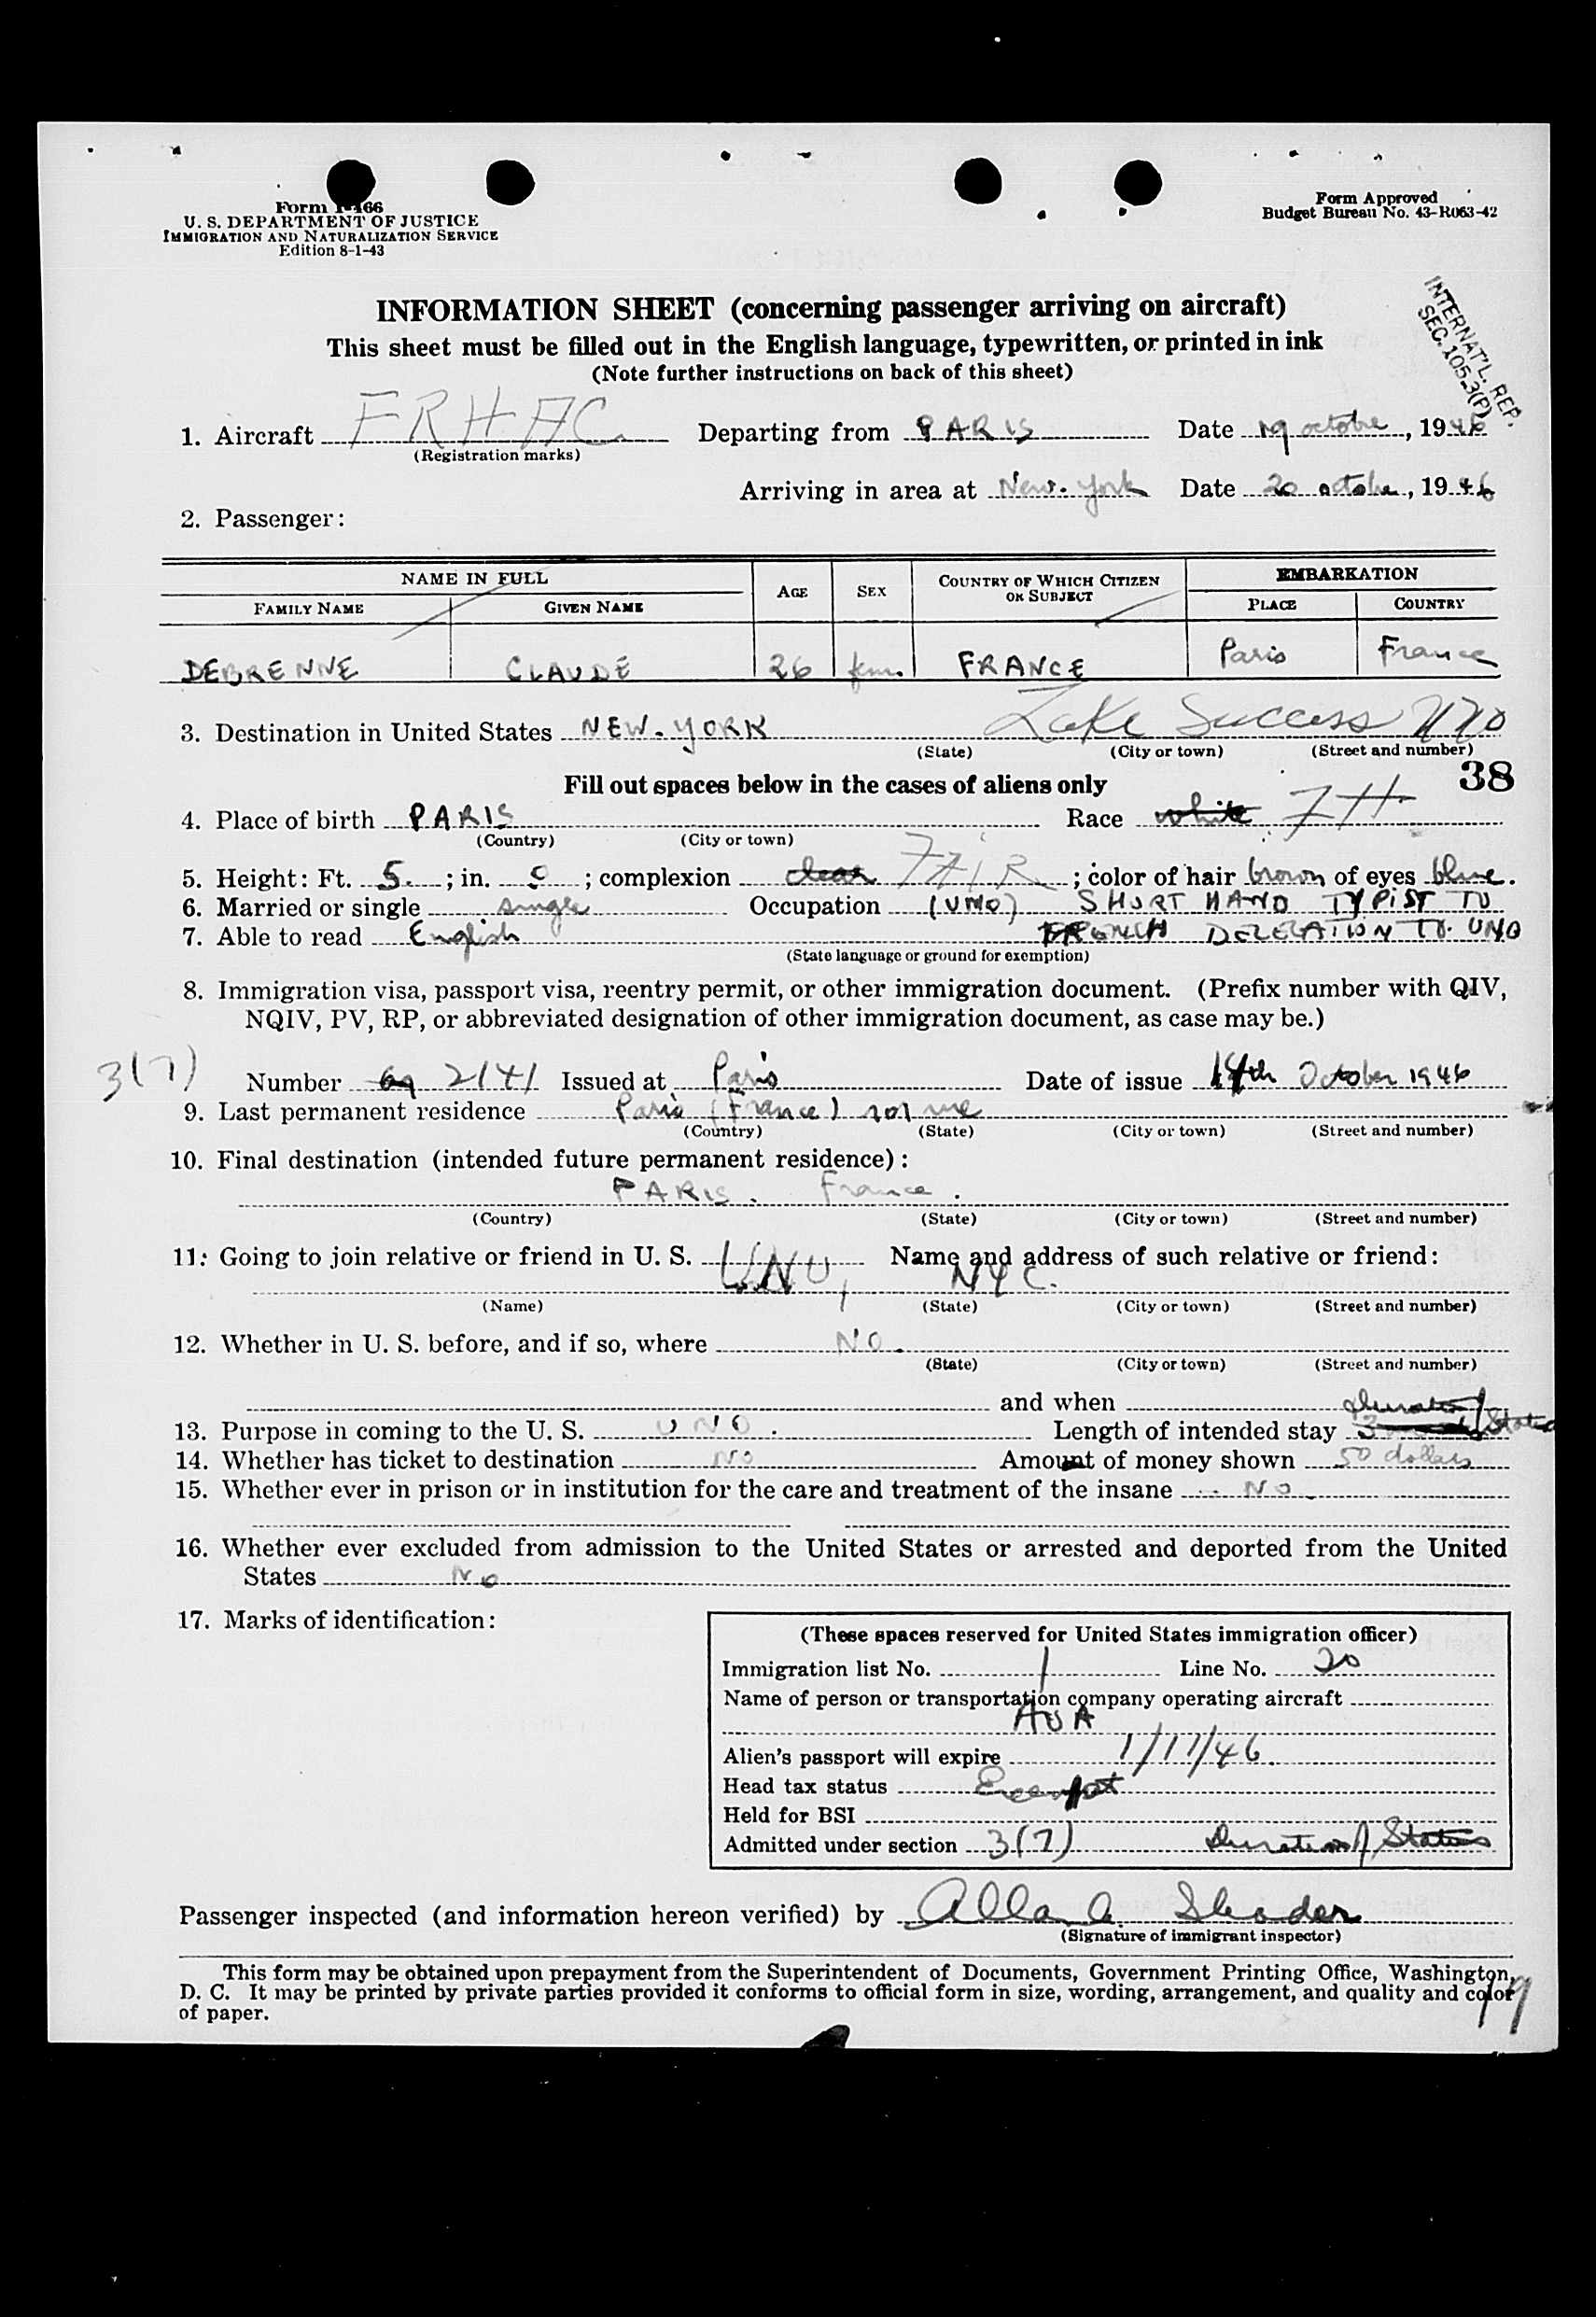 Form I-466
U. S. DEPARTMENT OF JUSTICE
IMMIGRATION AND NATURALIZATION SERVICE
Edition 8-1-43
Form Approved
Budget Bureau No. 43-R063-42
INTERNAT'L. REP.
SEC. 105.3(P)
INFORMATION SHEET (concerning passenger arriving on aircraft)
This sheet must be filled out in the English language, typewritten, or printed in ink
(Note further instructions on back of this sheet)
1. Aircraft FRHAC Departing from PARIS Date 19 octobre, 1946
(Registration marks)
Arriving in area at New-York Date 20 octobre, 1946
2. Passenger:
NAME IN FULL AGE SEX COUNTRY OF WHICH CITIZEN OR SUBJECT EMBARKATION
FAMILY NAME GIVEN NAME PLACE COUNTRY
DEBRENNE CLAUDE 26 fem. FRANCE Paris France
3. Destination in United States NEW-YORK Lake Success UNO
(State) (City or town) (Street and number)
Fill out spaces below in the cases of aliens only
38
4. Place of birth PARIS Race white
(Country) (City or town)
5. Height: Ft. 5. ; in. ; complexion clear FAIR ; color of hair brown of eyes blue.
6. Married or single single Occupation (UNO) SHORT HAND TYPIST TO
7. Able to read English FRENCH DELEGATION TO UNO
(State language or ground for exemption)
8. Immigration visa, passport visa, reentry permit, or other immigration document. (Prefix number with QIV,
NQIV, PV, RP, or abbreviated designation of other immigration document, as case may be.)
3(7)
Number 2141 Issued at Paris Date of issue 14th October 1946
9. Last permanent residence Paris (France) 101 rue
(Country) (State) (City or town) (Street and number)
10. Final destination (intended future permanent residence):
PARIS. France.
(Country) (State) (City or town) (Street and number)
11. Going to join relative or friend in U. S. UNO, Name and address of such relative or friend:
NYC.
(Name) (State) (City or town) (Street and number)
12. Whether in U. S. before, and if so, where NO.
(State) (City or town) (Street and number)
and when
13. Purpose in coming to the U. S. UNO. Length of intended stay 3 Duration of Status
14. Whether has ticket to destination NO Amount of money shown 50 dollars
15. Whether ever in prison or in institution for the care and treatment of the insane NO.
16. Whether ever excluded from admission to the United States or arrested and deported from the United
States No
17. Marks of identification:
(These spaces reserved for United States immigration officer)
Immigration list No. 1 Line No. 20
Name of person or transportation company operating aircraft
AOA
Alien's passport will expire 1/17/46
Head tax status Exempt
Held for BSI
Admitted under section 3(7) Duration of Status
Passenger inspected (and information hereon verified) by
(Signature of immigrant inspector)
This form may be obtained upon prepayment from the Superintendent of Documents, Government Printing Office, Washington,
D. C. It may be printed by private parties provided it conforms to official form in size, wording, arrangement, and quality and color
of paper.
19